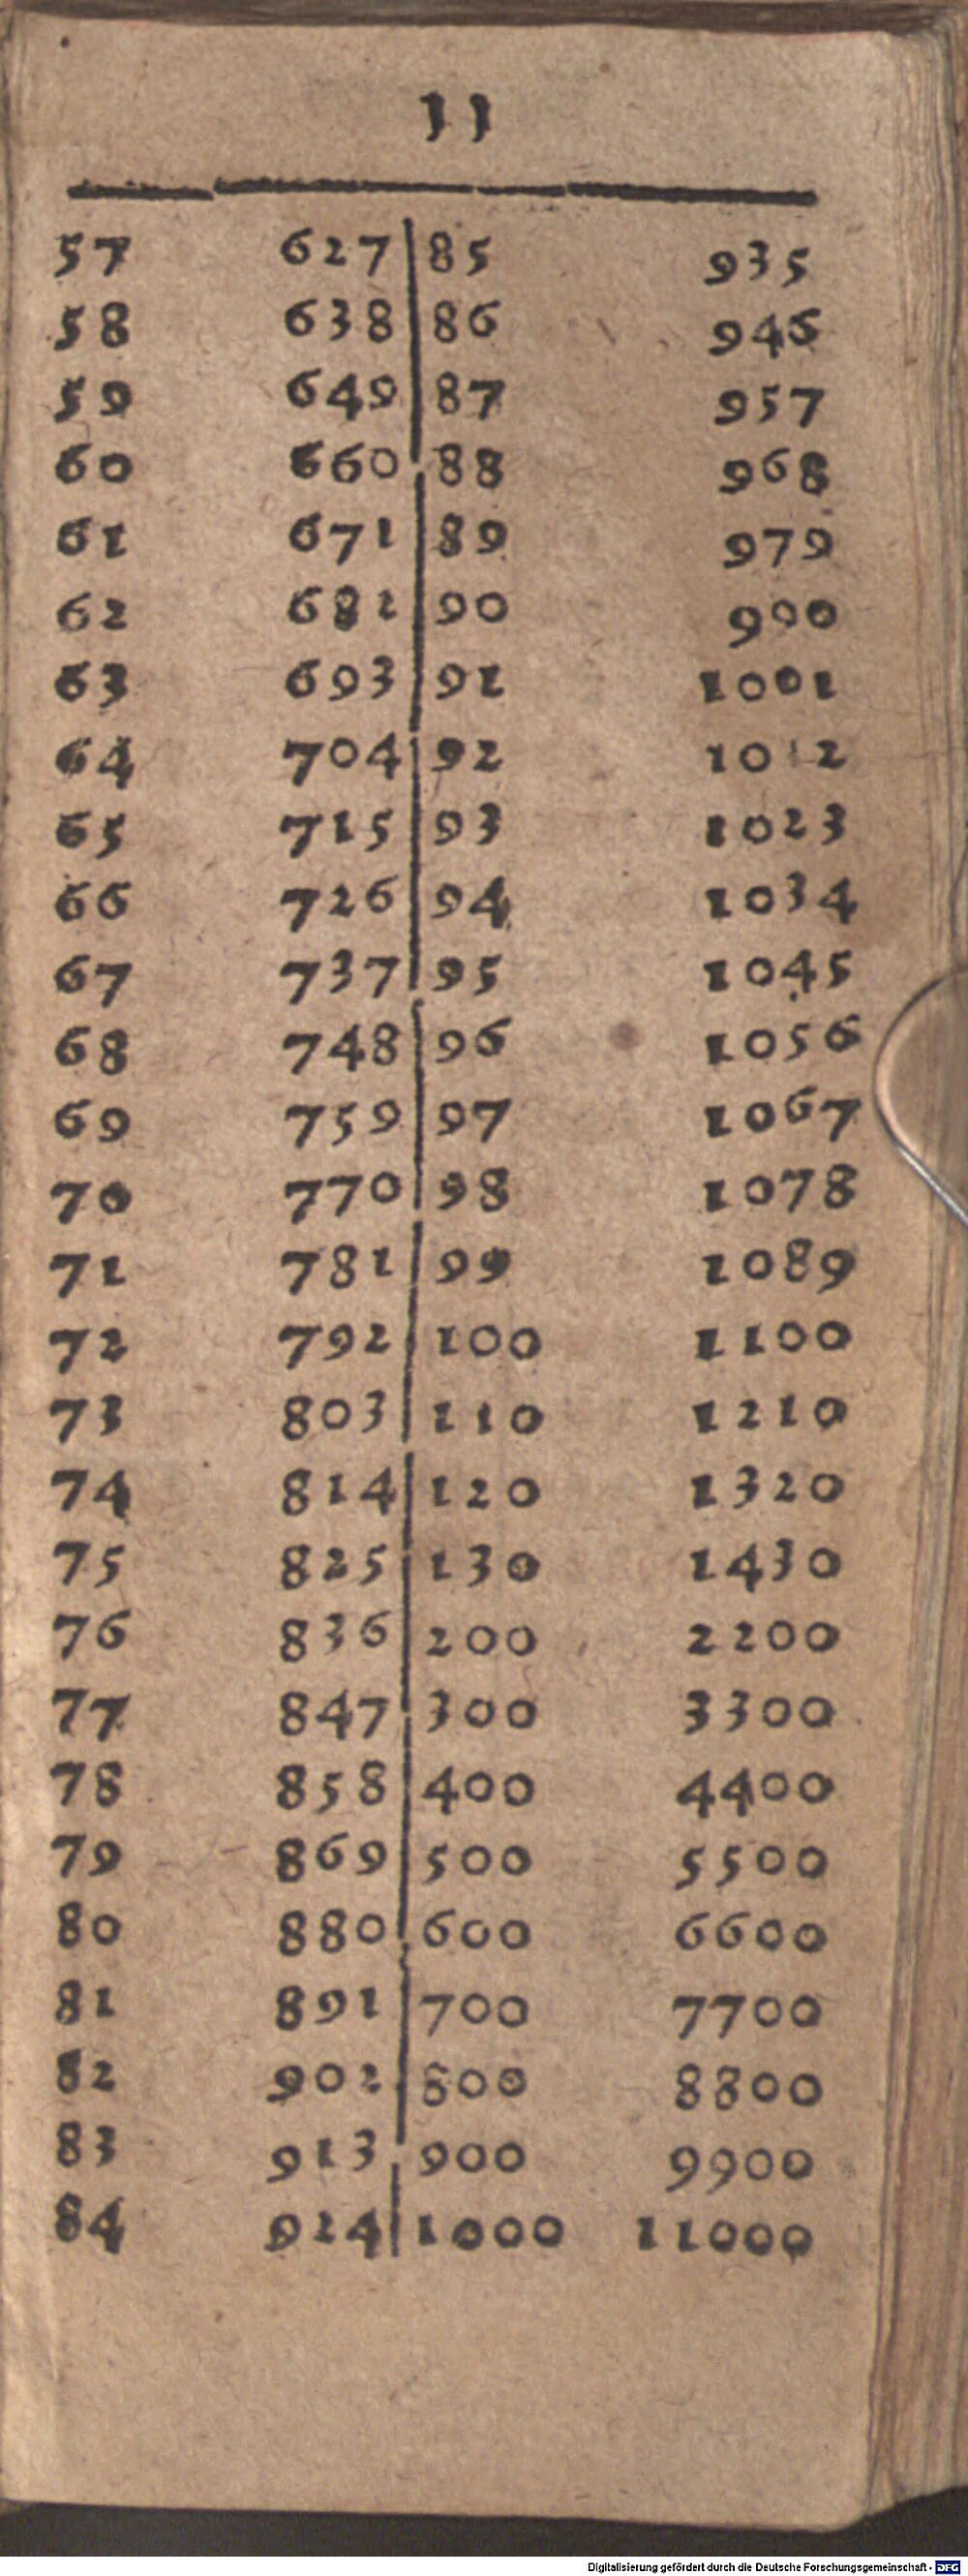 11
57 627 85 935
58 638 86 946
59 649 87 957
60 660 88 968
61 671 89 979
62 682 90 900
63 693 91 1001
64 704 92 1012
65 715 93 1023
66 726 94 1034
67 737 95 1045
68 748 96 1056
69 759 97 1067
70 770 98 1078
71 781 99 1089
72 792 100 1100
73 803 110 1210
74 814 120 1320
75 825 130 1430
76 836 200 2200
77 847 300 3300
78 858 400 4400
79 869 500 5500
80 880 600 6600
81 891 700 7700
82 902 800 8800
83 913 900 9900
84 924 1000 11000
Digitalisierung gefördert durch die Deutsche Forschungsgemeinschaft - DFG